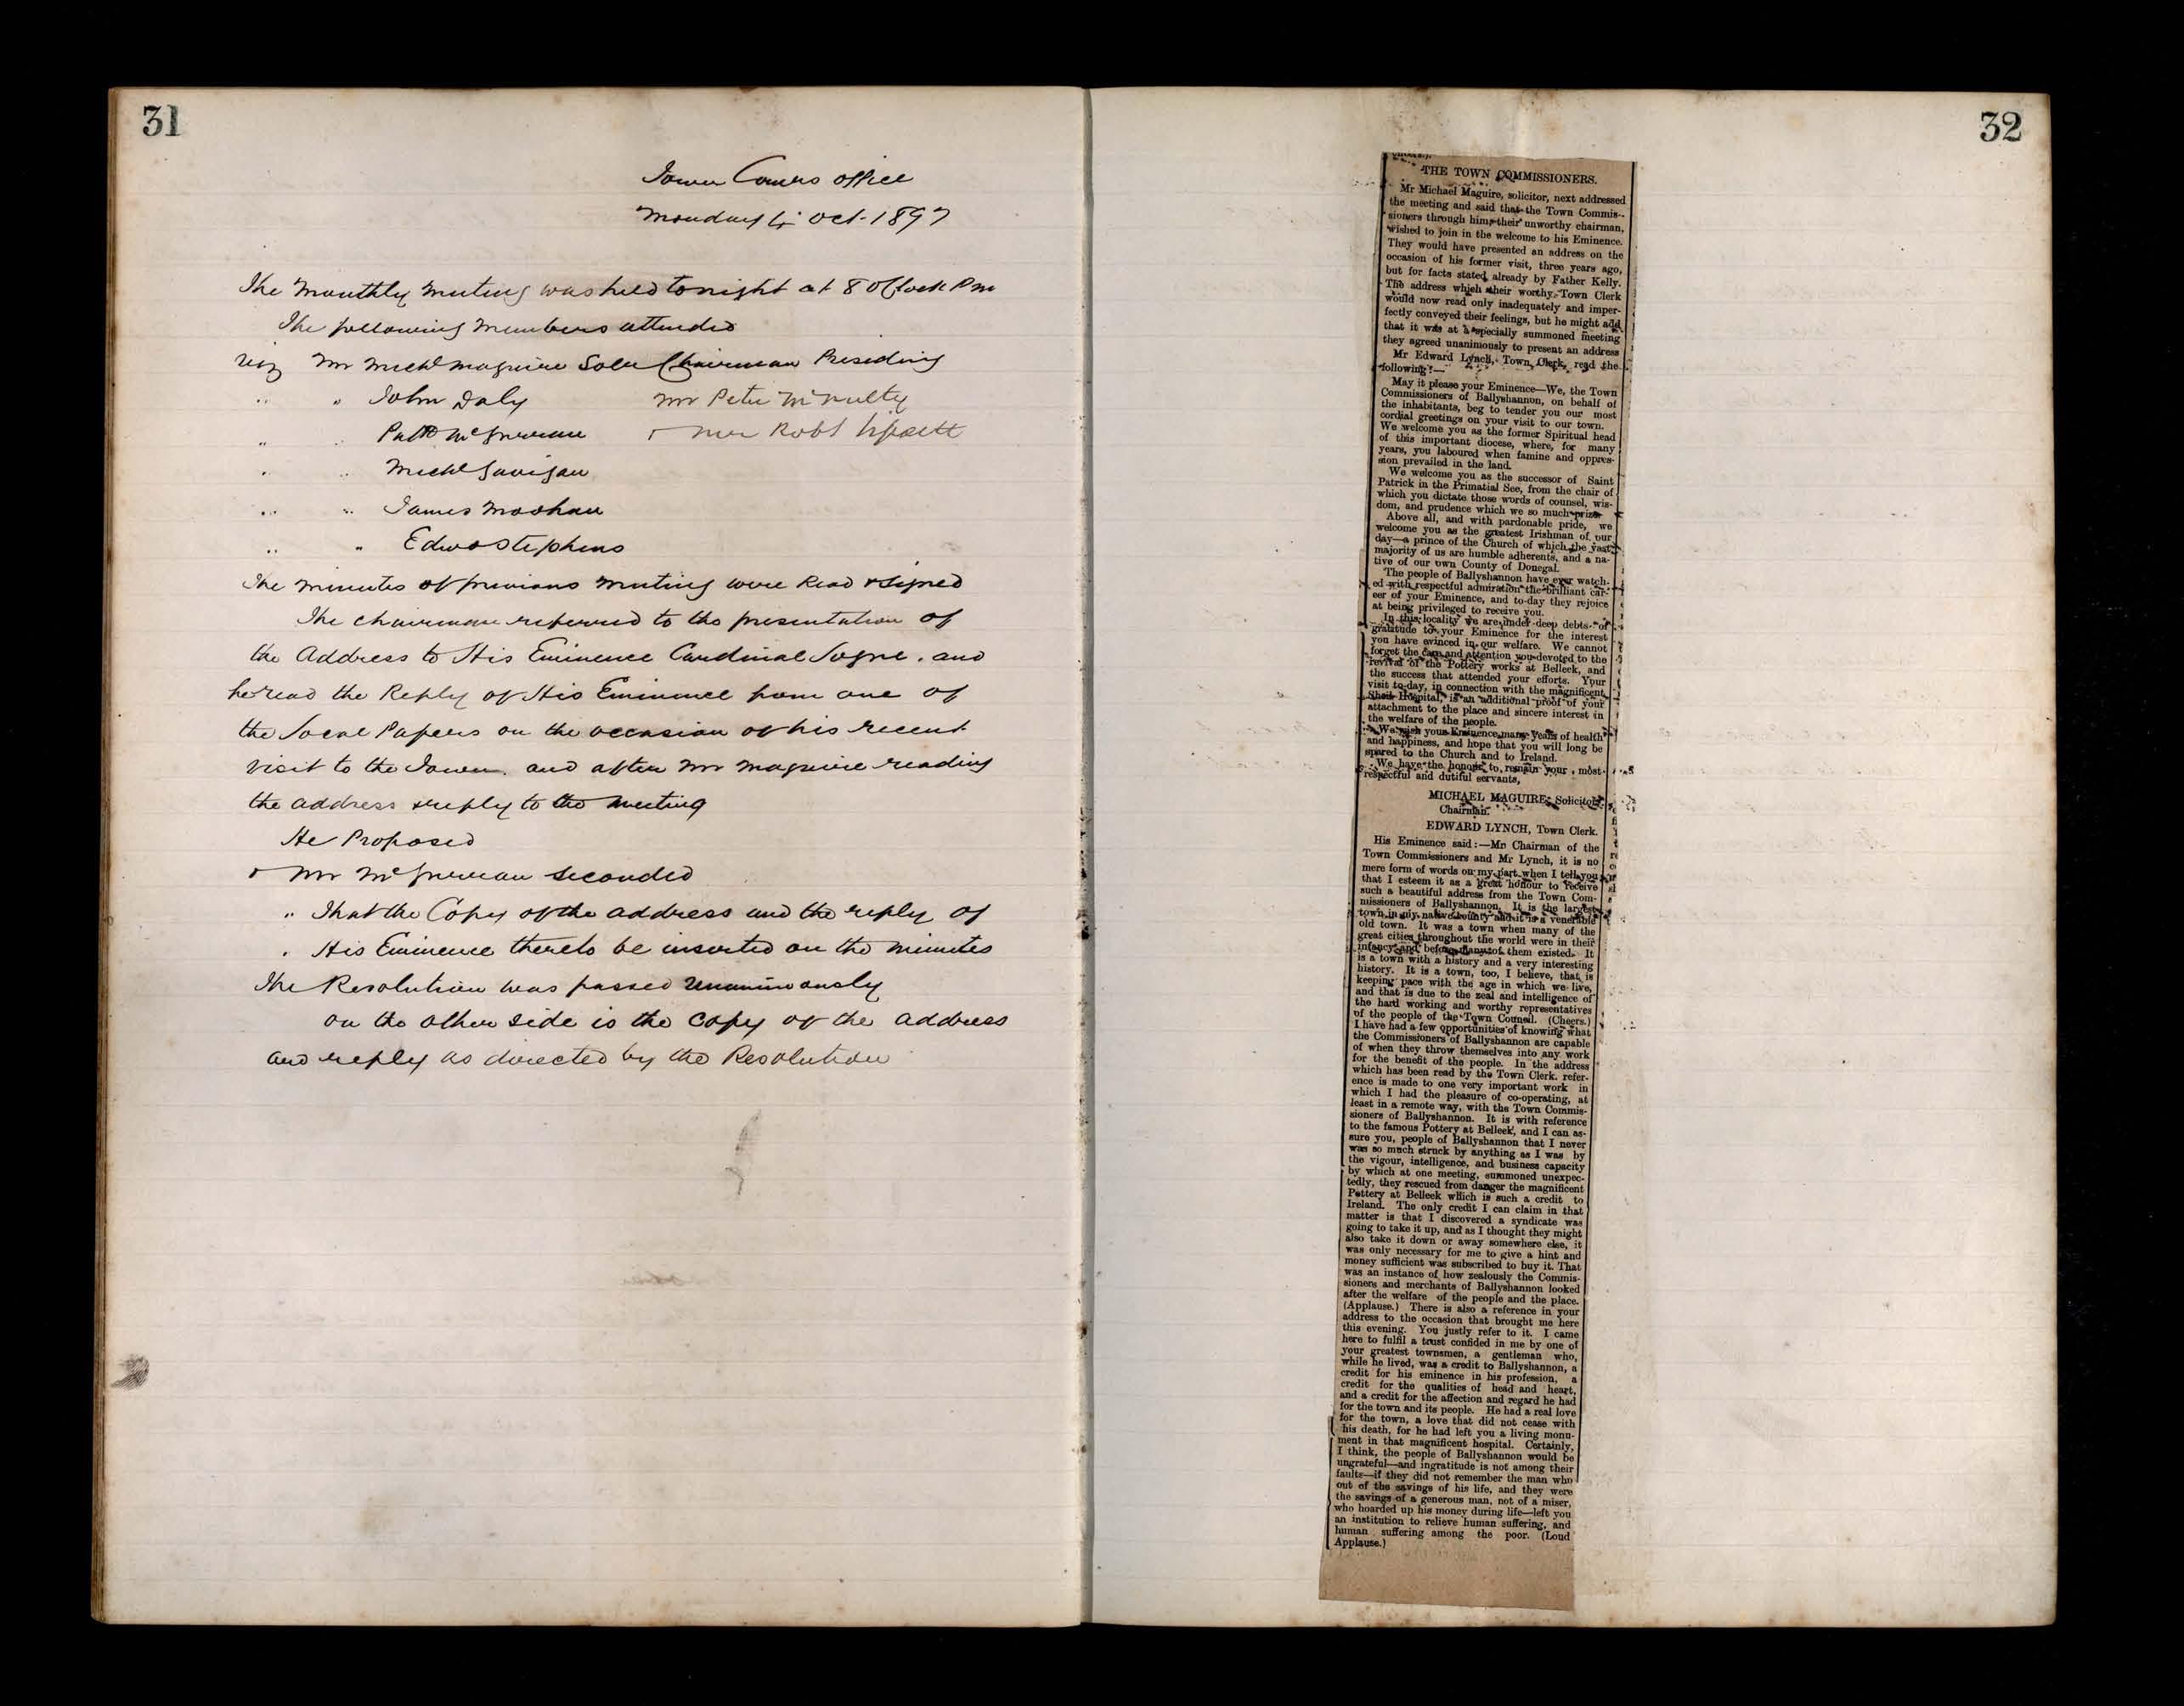 31
Town Comrs office
Monday 4th Oct. 1897
The Monthly Meeting was held tonight at 8 OClock Pm
The following Members attended
viz Mr Michl Maguire Solr Chairman Presiding
" " John Daly Mr Peter McNulty
" " Patk McGrevean & Mr Robt
" " Michl Gavigan
" " James Moohan
" " Edwd Stephens
The minutes of previous Meeting were Read & signed
The chairman referred to the presentation of
the Address to His Eminence Cardinal Logue. and
he read the Reply of His Eminence from one of
the Local Papers on the occasion of his recent
visit to the Town. and after Mr Maguire reading
the address & reply to the Meeting
He Proposed
& Mr McGrevean seconded
" That the Copy of the address and the reply of
" His Eminence thereto be inserted on the minutes
The Resolution was passed Unanimously
on the other side is the copy of the address
and reply as directed by the Resolution
32
THE TOWN COMMISSIONERS.
Mr Michael Maguire, solicitor, next addressed
the meeting and said that the Town Commis-
sioners through him, their unworthy chairman,
wished to join in the welcome to his Eminence.
They would have presented an address on the
occasion of his former visit, three years ago,
but for facts stated already by Father Kelly.
The address which their worthy Town Clerk
would now read only inadequately and imper-
fectly conveyed their feelings, but he might add
that it was at a specially summoned meeting
they agreed unanimously to present an address
Mr Edward Lynch, Town Clerk, read the
following:—
May it please your Eminence—We, the Town
Commissioners of Ballyshannon, on behalf of
the inhabitants, beg to tender you our most
cordial greetings on your visit to our town.
We welcome you as the former Spiritual head
of this important diocese, where, for many
years, you laboured when famine and oppres-
sion prevailed in the land.
We welcome you as the successor of Saint
Patrick in the Primatial See, from the chair of
which you dictate those words of counsel, wis-
dom, and prudence which we so much prize
Above all, and with pardonable pride, we
welcome you as the greatest Irishman of our
day—a prince of the Church of which the vast
majority of us are humble adherents, and a na-
tive of our own County of Donegal.
The people of Ballyshannon have ever watch-
ed with respectful admiration the brilliant car-
eer of your Eminence, and to-day they rejoice
at being privileged to receive you.
In this locality we are under deep debts of
gratitude to your Eminence for the interest
you have evinced in our welfare. We cannot
forget the care and attention you devoted to the
revival of the Pottery works at Belleek, and
the success that attended your efforts. Your
visit to-day, in connection with the magnificent
Sheil Hospital, is an additional proof of your
attachment to the place and sincere interest in
the welfare of the people.
We wish your Eminence many years of health
and happiness, and hope that you will long be
spared to the Church and to Ireland.
We have the honour to remain your most
respectful and dutiful servants,
MICHAEL MAGUIRE, Solicitor,
Chairman.
EDWARD LYNCH, Town Clerk.
His Eminence said:—Mr Chairman of the
Town Commissioners and Mr Lynch, it is no
mere form of words on my part when I tell you
that I esteem it as a great honour to receive
such a beautiful address from the Town Com-
missioners of Ballyshannon. It is the largest
town in my native county and it is a venerable
old town. It was a town when many of the
great cities throughout the world were in their
infancy and before many of them existed. It
is a town with a history and a very interesting
history. It is a town, too, I believe, that is
keeping pace with the age in which we live,
and that is due to the zeal and intelligence of
the hard working and worthy representatives
of the people of the Town Council. (Cheers.)
I have had a few opportunities of knowing what
the Commissioners of Ballyshannon are capable
of when they throw themselves into any work
for the benefit of the people. In the address
which has been read by the Town Clerk, refer-
ence is made to one very important work in
which I had the pleasure of co-operating, at
least in a remote way, with the Town Commis-
sioners of Ballyshannon. It is with reference
to the famous Pottery at Belleek, and I can as-
sure you, people of Ballyshannon that I never
was so much struck by anything as I was by
the vigour, intelligence, and business capacity
by which at one meeting, summoned unexpec-
tedly, they rescued from danger the magnificent
Pottery at Belleek which is such a credit to
Ireland. The only credit I can claim in that
matter is that I discovered a syndicate was
going to take it up, and as I thought they might
also take it down or away somewhere else, it
was only necessary for me to give a hint and
money sufficient was subscribed to buy it. That
was an instance of how zealously the Commis-
sioners and merchants of Ballyshannon looked
after the welfare of the people and the place.
(Applause.) There is also a reference in your
address to the occasion that brought me here
this evening. You justly refer to it. I came
here to fulfil a trust confided in me by one of
your greatest townsmen, a gentleman who,
while he lived, was a credit to Ballyshannon, a
credit for his eminence in his profession, a
credit for the qualities of head and heart,
and a credit for the affection and regard he had
for the town and its people. He had a real love
for the town, a love that did not cease with
his death, for he had left you a living monu-
ment in that magnificent hospital. Certainly,
I think, the people of Ballyshannon would be
ungrateful—and ingratitude is not among their
faults—if they did not remember the man who
out of the savings of his life, and they were
the savings of a generous man, not of a miser,
who hoarded up his money during life—left you
an institution to relieve human suffering, and
human suffering among the poor. (Loud
Applause.)